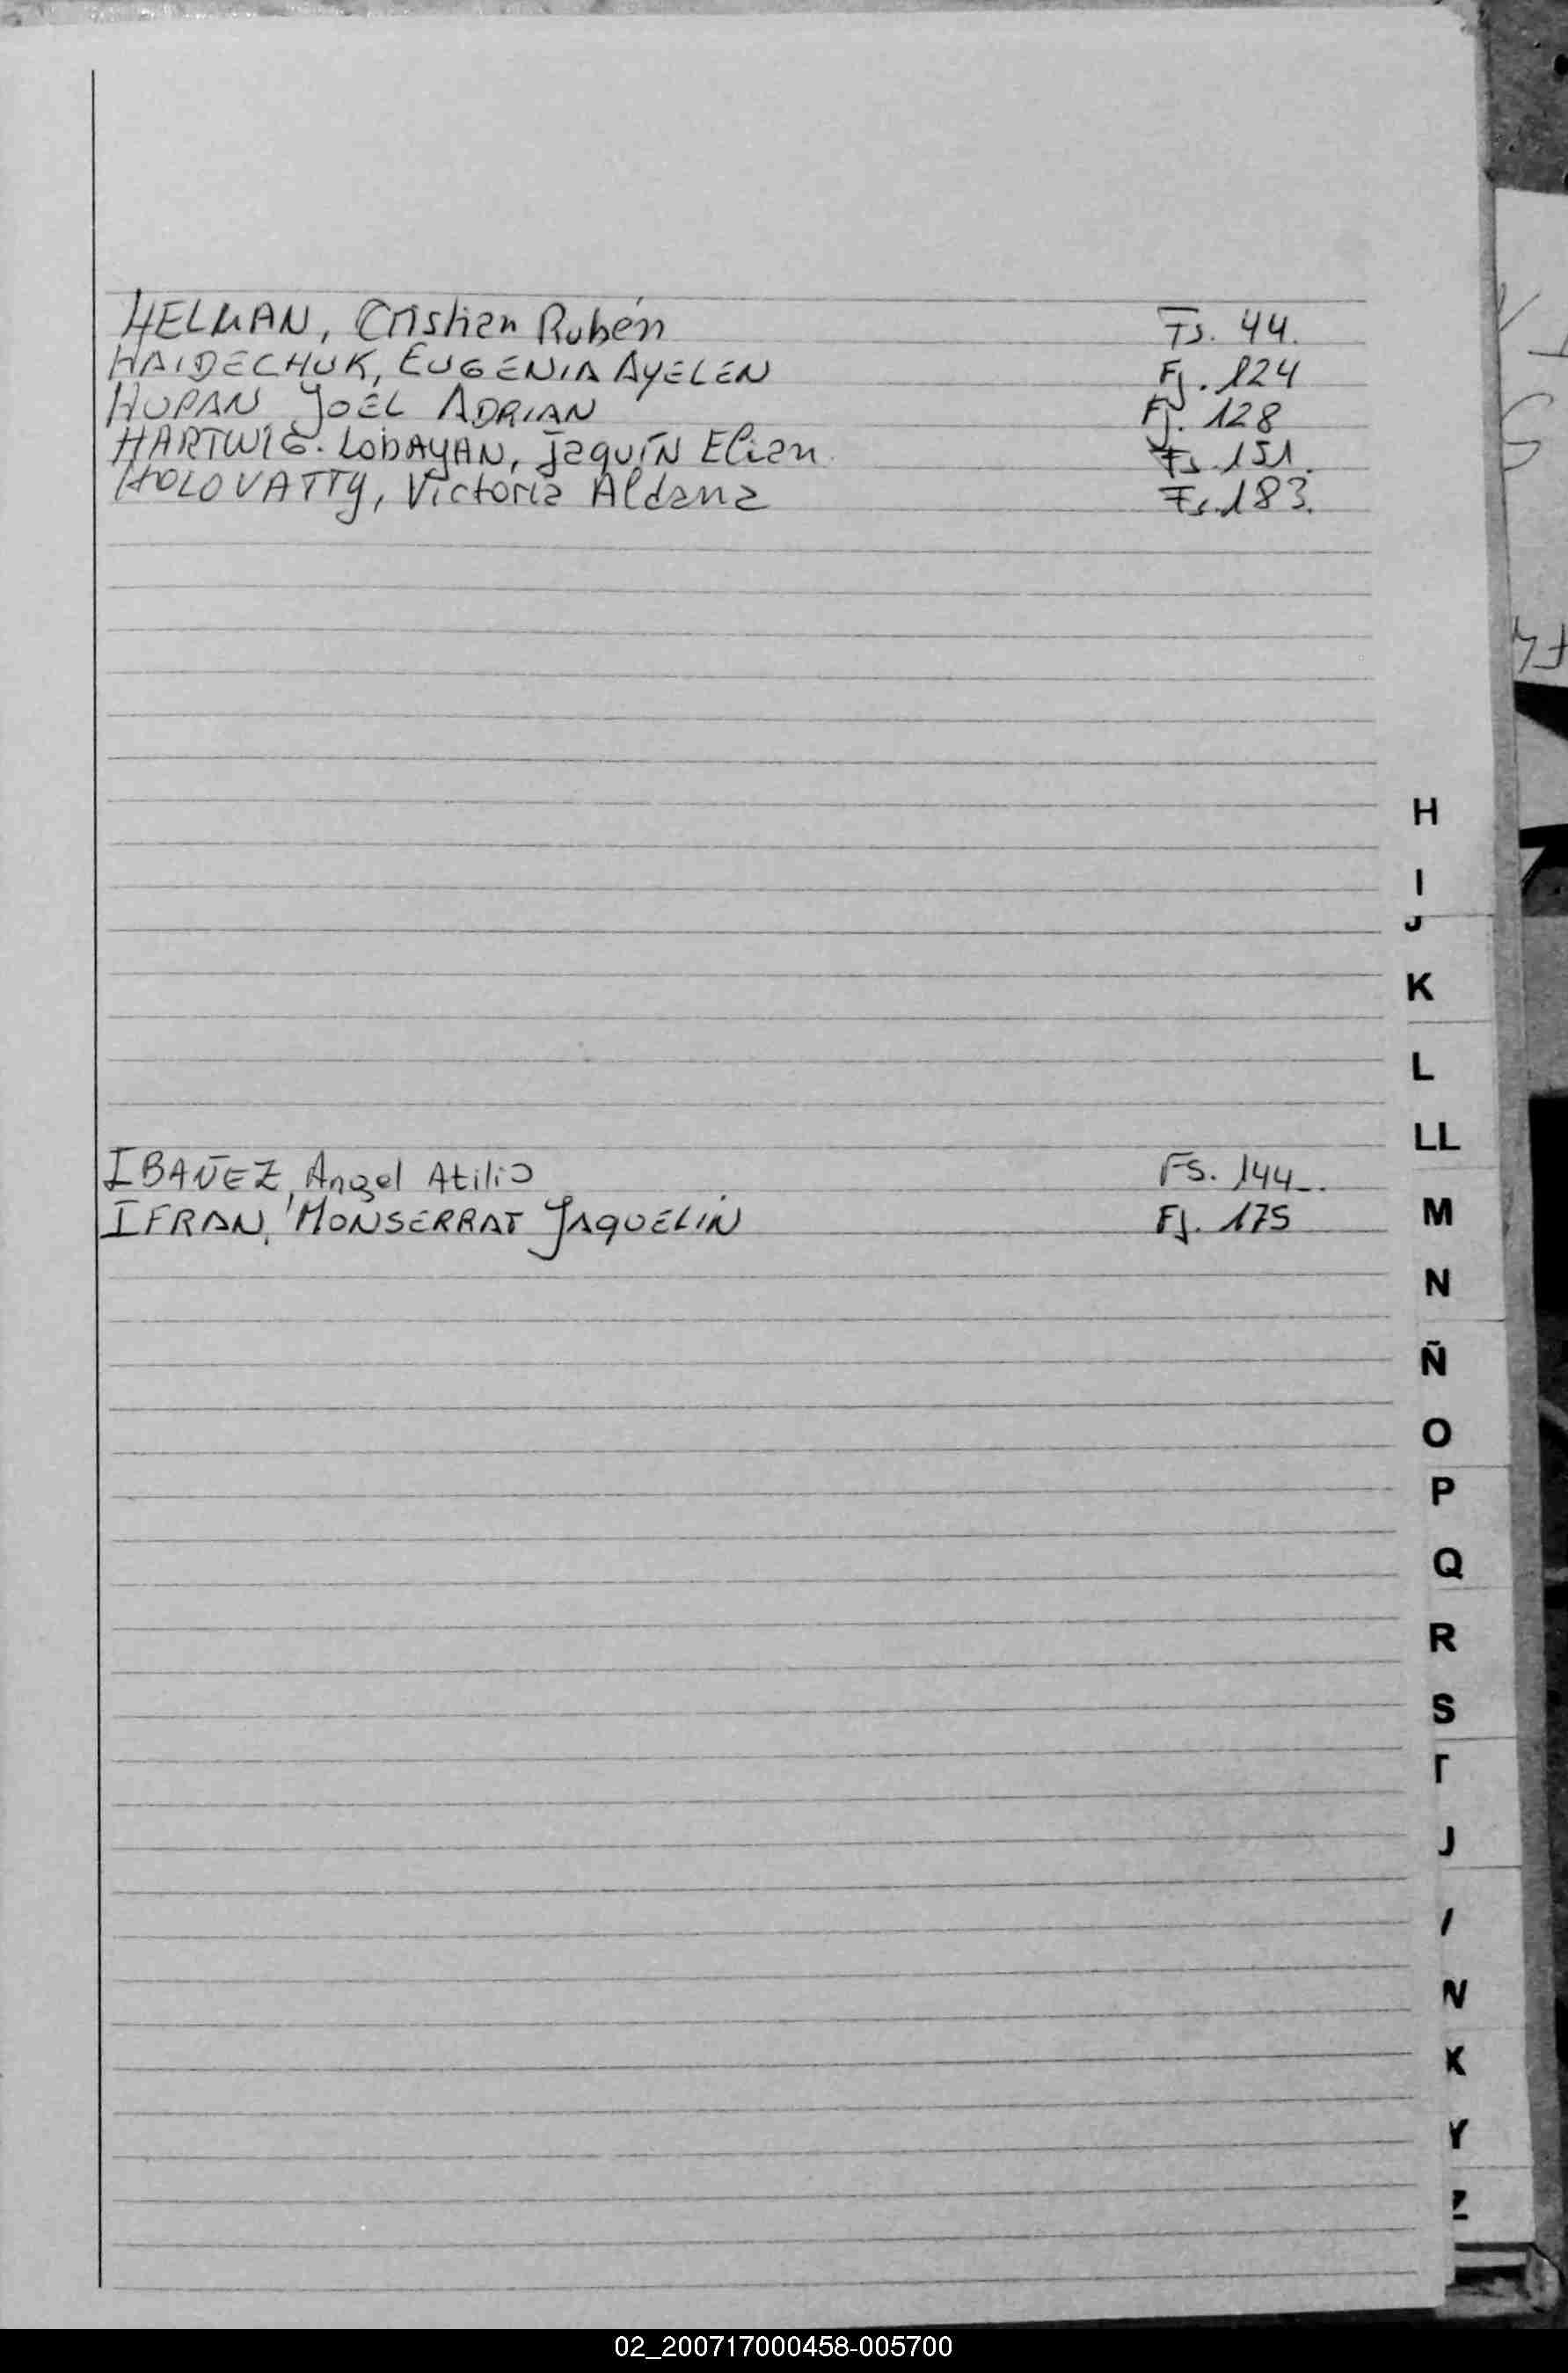 HELMAN, Cristian Rubén Fs. 44.
HAIDECHUK, EUGENIA AYELEN Fj. 124
HUPAN JOEL ADRIAN Fj. 128
HARTWIG. LODAYAN, Jaquín Elian. Fs. 151.
HOLOVATTY, Victoria Aldana Fs. 183.
H
I
J
K
L
LL
IBAÑEZ, Angel Atilio Fs. 144_.
IFRAN, MONSERRAT JAQUELÍN Fj. 175
M
N
Ñ
O
P
Q
R
S
T
J
/
N
K
Y
Z
02_200717000458-005700